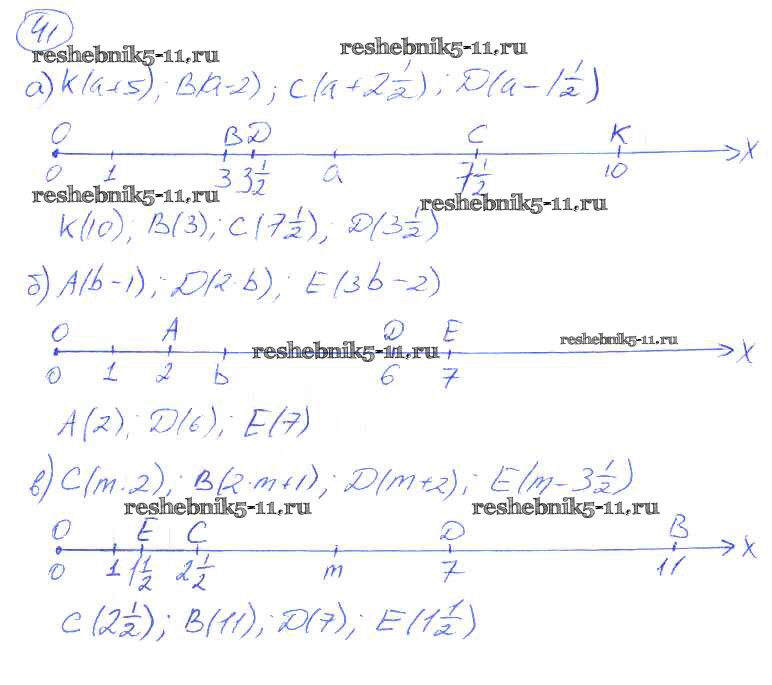 41
reshebnik5-11.ru
reshebnik5-11.ru
а) K(a+5); B(a-2); C(a+2 1/2); D(a-1 1/2)
O B D C K
0 1 3 3 1/2 a 7 1/2 10 X
reshebnik5-11.ru
reshebnik5-11.ru
K(10); B(3); C(7 1/2); D(3 1/2)
б) A(b-1); D(2·b); E(3b-2)
O A D E
reshebnik5-11.ru
reshebnik5-11.ru
0 1 2 b 6 7 X
A(2); D(6); E(7)
в) C(m·2); B(2·m+1); D(m+2); E(m-3 1/2)
reshebnik5-11.ru
reshebnik5-11.ru
O E C D B
0 1 1 1/2 2 1/2 m 7 11 X
C(2 1/2); B(11); D(7); E(1 1/2)